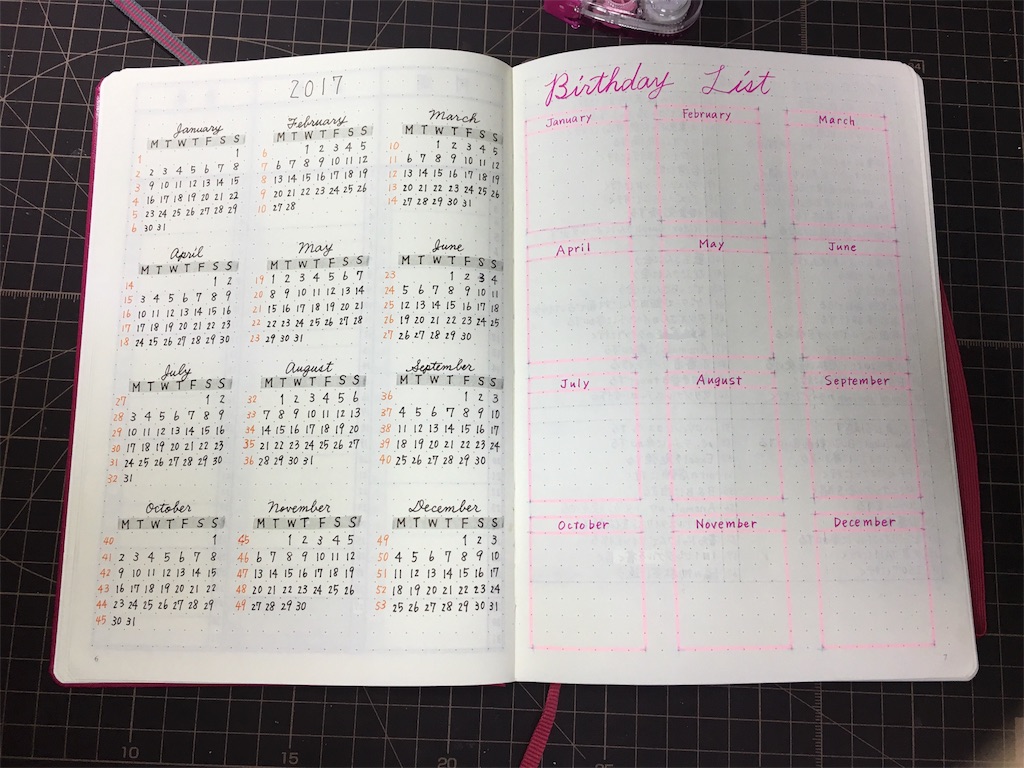 2017
January
M T W T F S S
1 1
2 2 3 4 5 6 7 8
3 9 10 11 12 13 14 15
4 16 17 18 19 20 21 22
5 23 24 25 26 27 28 29
6 30 31
February
M T W T F S S
6 1 2 3 4 5
7 6 7 8 9 10 11 12
8 13 14 15 16 17 18 19
9 20 21 22 23 24 25 26
10 27 28
March
M T W T F S S
10 1 2 3 4 5
11 6 7 8 9 10 11 12
12 13 14 15 16 17 18 19
13 20 21 22 23 24 25 26
14 27 28 29 30 31
April
M T W T F S S
14 1 2
15 3 4 5 6 7 8 9
16 10 11 12 13 14 15 16
17 17 18 19 20 21 22 23
18 24 25 26 27 28 29 30
May
M T W T F S S
19 1 2 3 4 5 6 7
20 8 9 10 11 12 13 14
21 15 16 17 18 19 20 21
22 22 23 24 25 26 27 28
23 29 30 31
June
M T W T F S S
23 1 2 3 4
24 5 6 7 8 9 10 11
25 12 13 14 15 16 17 18
26 19 20 21 22 23 24 25
27 26 27 28 29 30
July
M T W T F S S
27 1 2
28 3 4 5 6 7 8 9
29 10 11 12 13 14 15 16
30 17 18 19 20 21 22 23
31 24 25 26 27 28 29 30
32 31
August
M T W T F S S
32 1 2 3 4 5 6
33 7 8 9 10 11 12 13
34 14 15 16 17 18 19 20
35 21 22 23 24 25 26 27
36 28 29 30 31
September
M T W T F S S
36 1 2 3
37 4 5 6 7 8 9 10
38 11 12 13 14 15 16 17
39 18 19 20 21 22 23 24
40 25 26 27 28 29 30
October
M T W T F S S
40 1
41 2 3 4 5 6 7 8
42 9 10 11 12 13 14 15
43 16 17 18 19 20 21 22
44 23 24 25 26 27 28 29
45 30 31
November
M T W T F S S
45 1 2 3 4 5
46 6 7 8 9 10 11 12
47 13 14 15 16 17 18 19
48 20 21 22 23 24 25 26
49 27 28 29 30
December
M T W T F S S
49 1 2 3
50 4 5 6 7 8 9 10
51 11 12 13 14 15 16 17
52 18 19 20 21 22 23 24
53 25 26 27 28 29 30 31
6
Birthday List
January February March
April May June
July August September
October November December
7
10 15 20